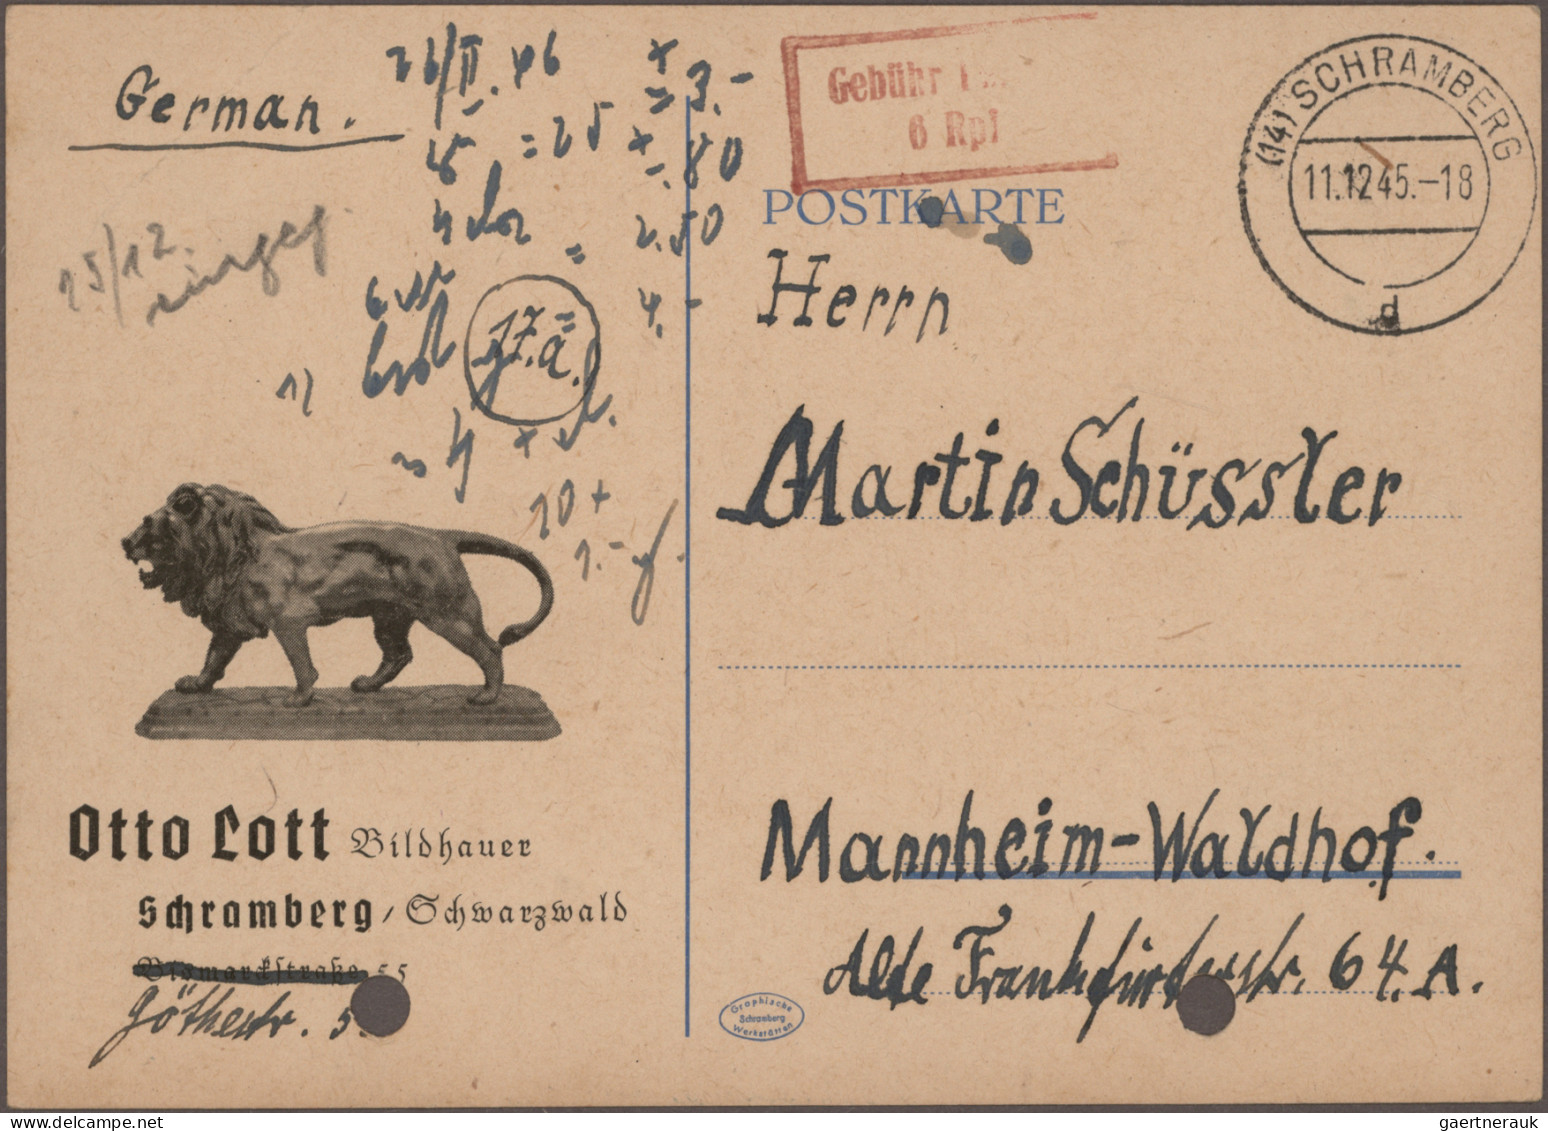 German.
26/II. 46
+ 3.-
= 25
-.80
= 2.50
4.-
17.a.
1)
10 +
1.-
25/12.
eingeg.
Otto Lott Bildhauer
Schramberg / Schwarzwald
Bismarckstraße 55
Göthestr. 5
Gebühr
6 Rpf
(14) SCHRAMBERG
11.12.45.-18
d
POSTKARTE
Herrn
Martin Schüssler
Mannheim-Waldhof.
Alte Frankfurterstr. 64.A.
Graphische
Schramberg
Werkstätten
gaertnerauk